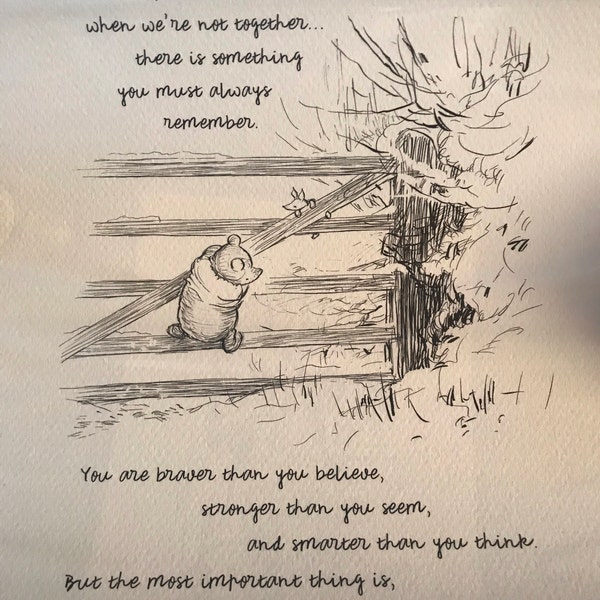 when we're not together...
there is something
you must always
remember.
You are braver than you believe,
stronger than you seem,
and smarter than you think.
But the most important thing is,